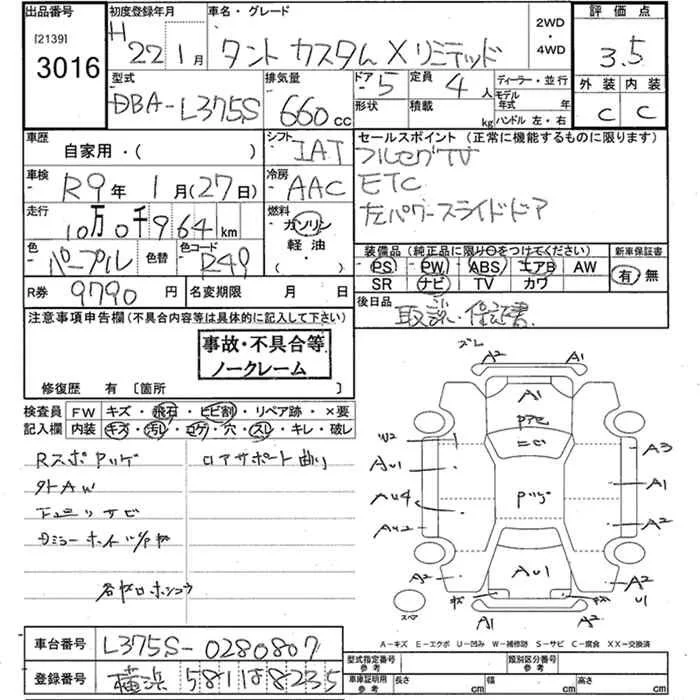 出品番号
[2139]
3016
初度登録年月
H22 1月
車名・グレード
タント カスタム X リミテッド
2WD
・
4WD
評価点
3.5
外装 内装
C C
型式
DBA-L375S
排気量
660cc
ドア
5
形状
定員
4人
積載
kg
ディーラー・並行
モデル年式 年
ハンドル 左・右
車歴
自家用・( )
シフト
IAT
セールスポイント (正常に機能するものに限ります)
フルセグTV
ETC
左パワースライドドア
車検
R9年 1月(27日)
冷房
AAC
走行
10万0千964km
燃料
ガソリン
軽油
・( )
色
パープル
色替
色コード
R49
装備品(純正品に限り○をつけてください)
PS PW ABS エアB AW
SR ナビ TV カワ
新車保証書
有 無
R券
9790円
名変期限 月 日
後日品
取説・保証書
注意事項申告欄(不具合内容等は具体的に記入して下さい)
事故・不具合等
ノークレーム
修復歴 有〔箇所 〕
検査員
記入欄
FW キズ・飛石・ヒビ割・リペア跡・×要
内装 キズ・汚レ・コゲ・穴・スレ・キレ・破レ
外AW
下廻リサビ
ロアサポート曲り
ズレ
A2 A1
A1
W2
AU1
AU4
AU2
A3
A1
A2
AU1
A2
A2
U1
キズ
スペア
A1 A2
A-キズ E-エクボ U-凹み W-補修跡 S-サビ C-腐食 XX-交換済
車台番号
L375S-0280807
登録番号
横浜 581 は 8235
型式指定番号
参考
類別区分番号
参考
車庫証明用
参考
長さ cm
幅 cm
高さ cm